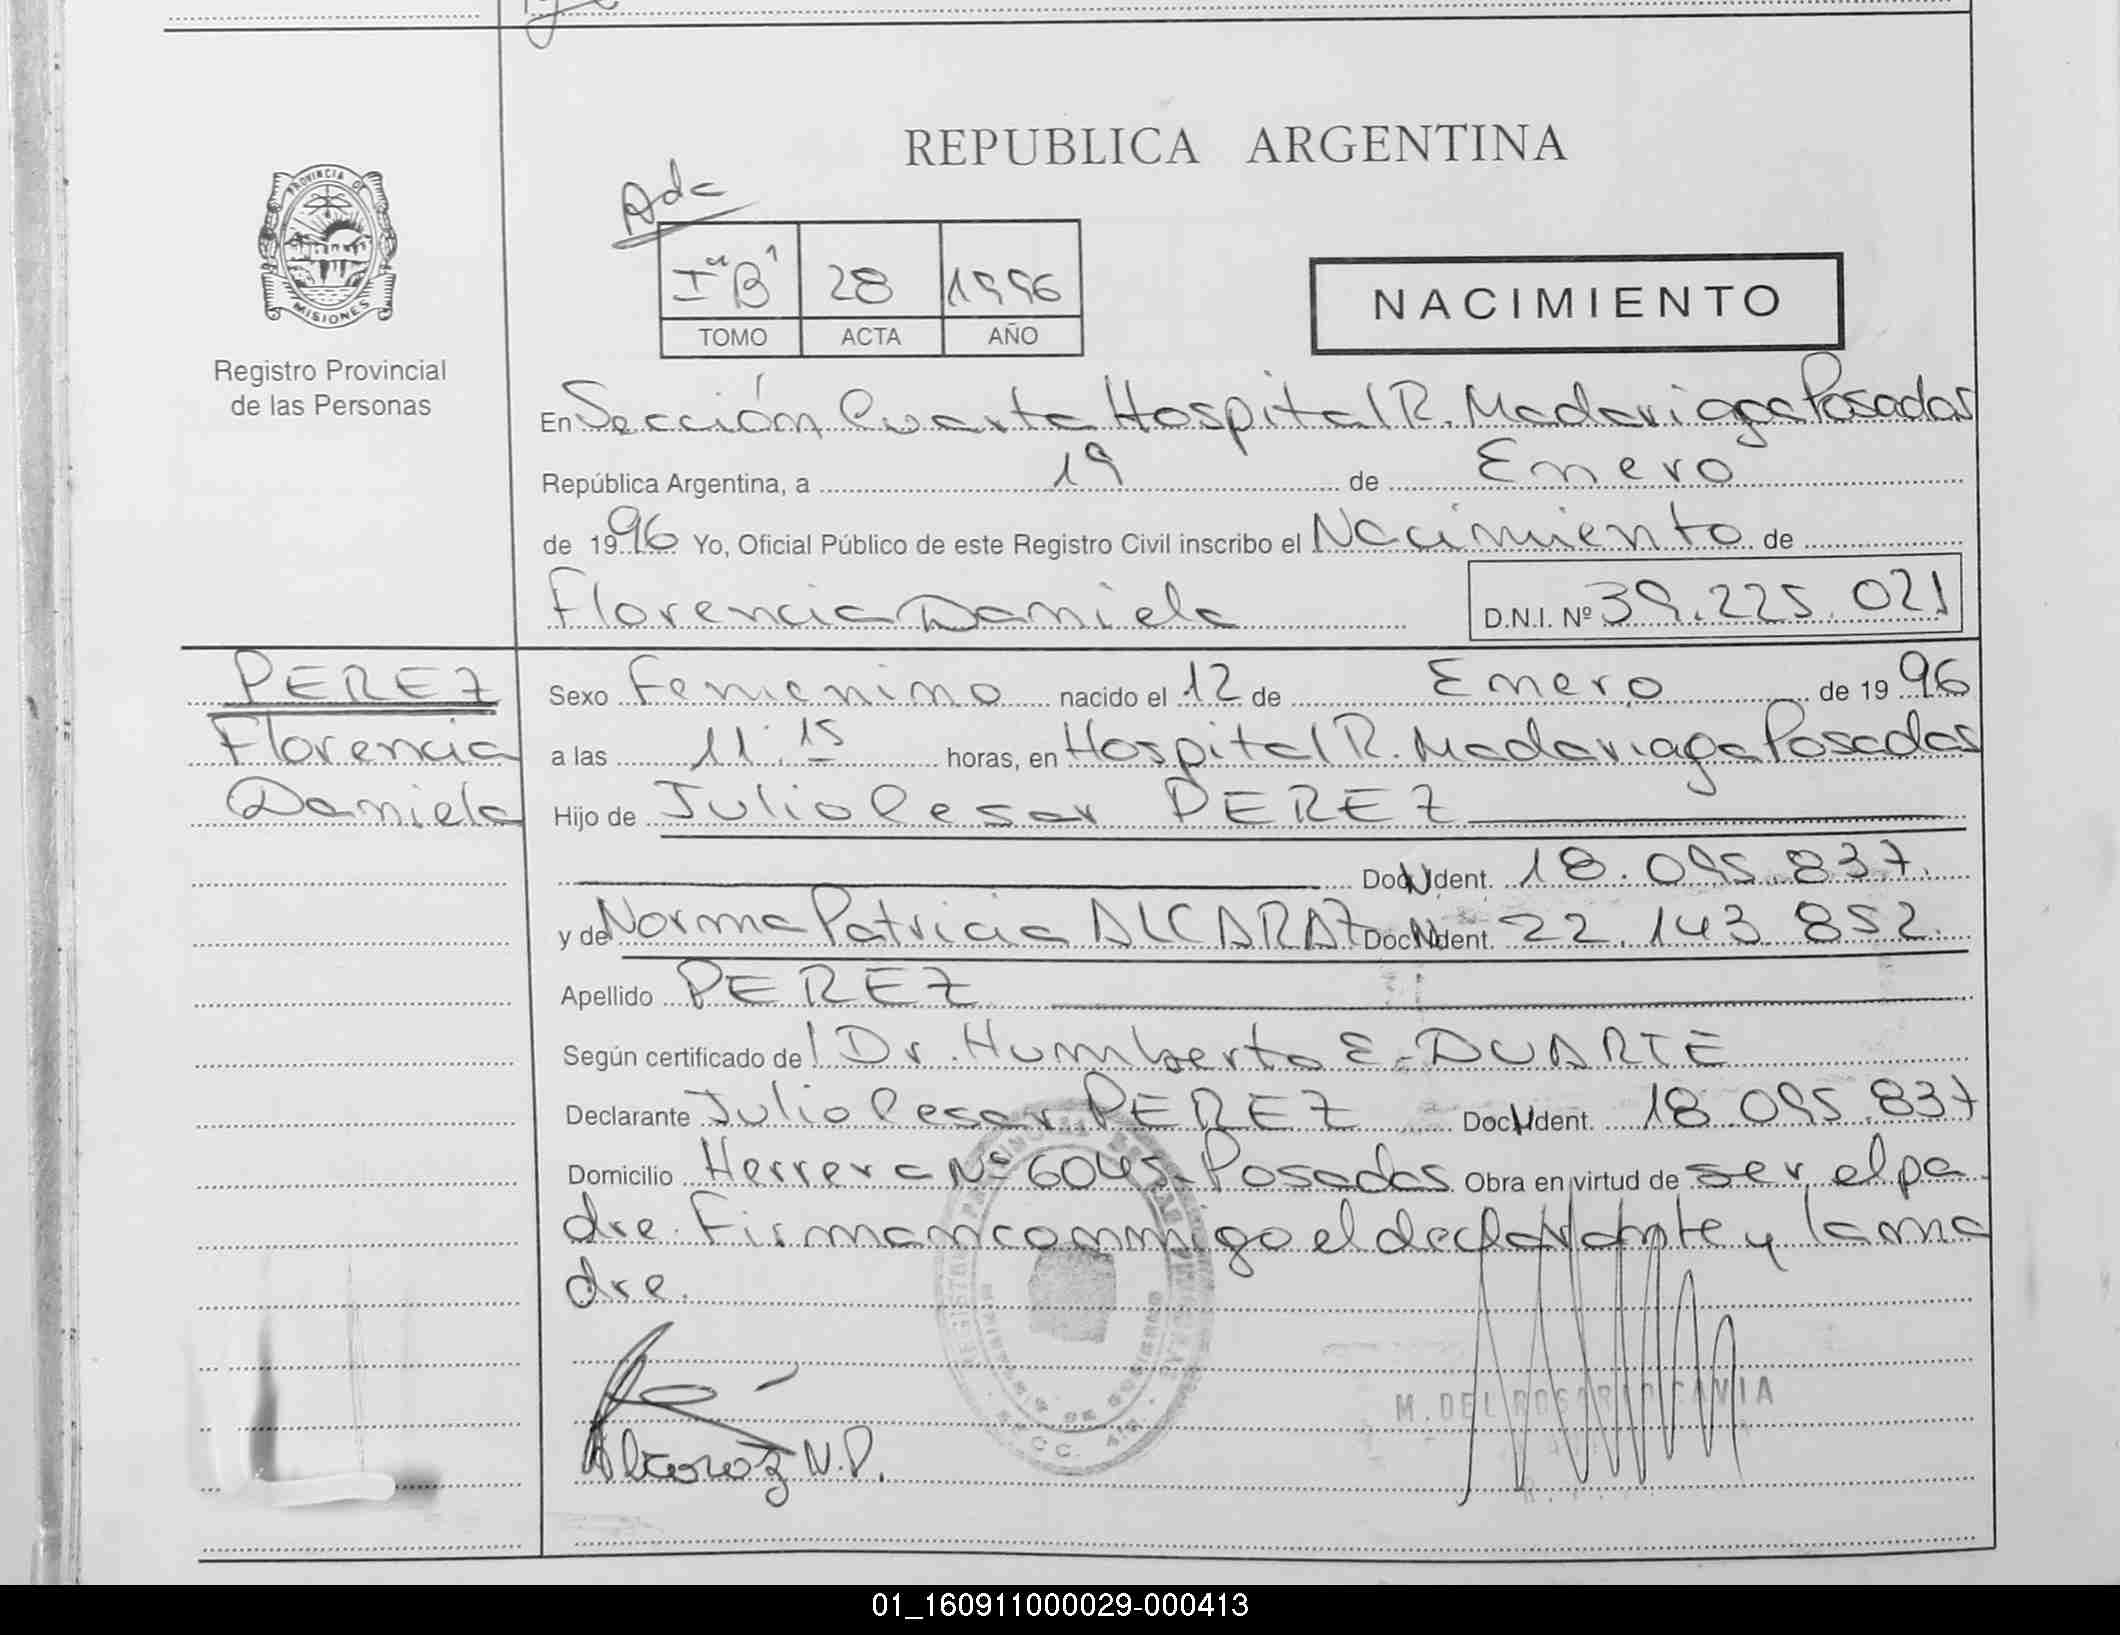 REPUBLICA ARGENTINA
PROVINCIA DE
MISIONES
Registro Provincial
de las Personas
Adc
I "B" 28 1996
TOMO ACTA AÑO
NACIMIENTO
En Sección Cuarta Hospital R. Madariaga Posadas
República Argentina, a 19 de Enero
de 1996 Yo, Oficial Público de este Registro Civil inscribo el Nacimiento de
Florencia Daniela D.N.I. Nº 39.225.021
PEREZ
Florencia
Daniela
Sexo Femenino nacido el 12 de Enero de 1996
a las 11:15 horas, en Hospital R. Madariaga Posadas
Hijo de Julio Cesar PEREZ
Doc. Ident. 18.095.837.
y de Norma Patricia ALCARAZ Doc. Ident. 22.143.852.
Apellido PEREZ
Según certificado del Dr. Humberto E. DUARTE
Declarante Julio Cesar PEREZ Doc. Ident. 18.095.837
Domicilio Herrera Nº 6045 - Posadas Obra en virtud de ser el pa-
dre. Firman conmigo el declarante y la ma
dre.
M. DEL ROSARIO CAVIA
Alcaraz N.P.
01_160911000029-000413